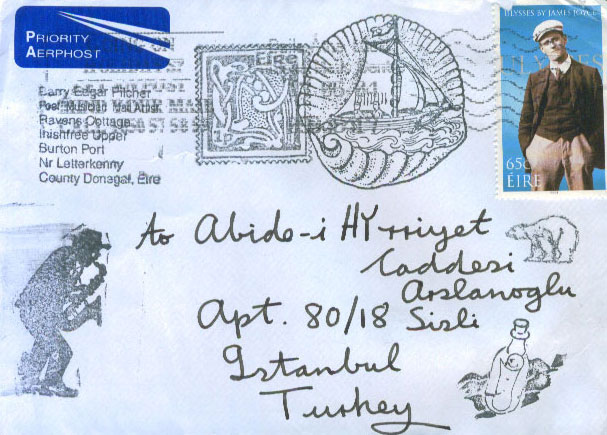 PRIORITY
AERPHOST
ULYSSES BY JAMES JOYCE
Larry Edgar Pilcher
Ravens Cottage
Inishfree Upper
Burton Port
Nr Letterkenny
County Donegal, Eire
65c
ÉIRE
to Abide-i HYrriyet
Caddesi
Arslanoglu
Apt. 80/18 Sisli
Istanbul
Turkey